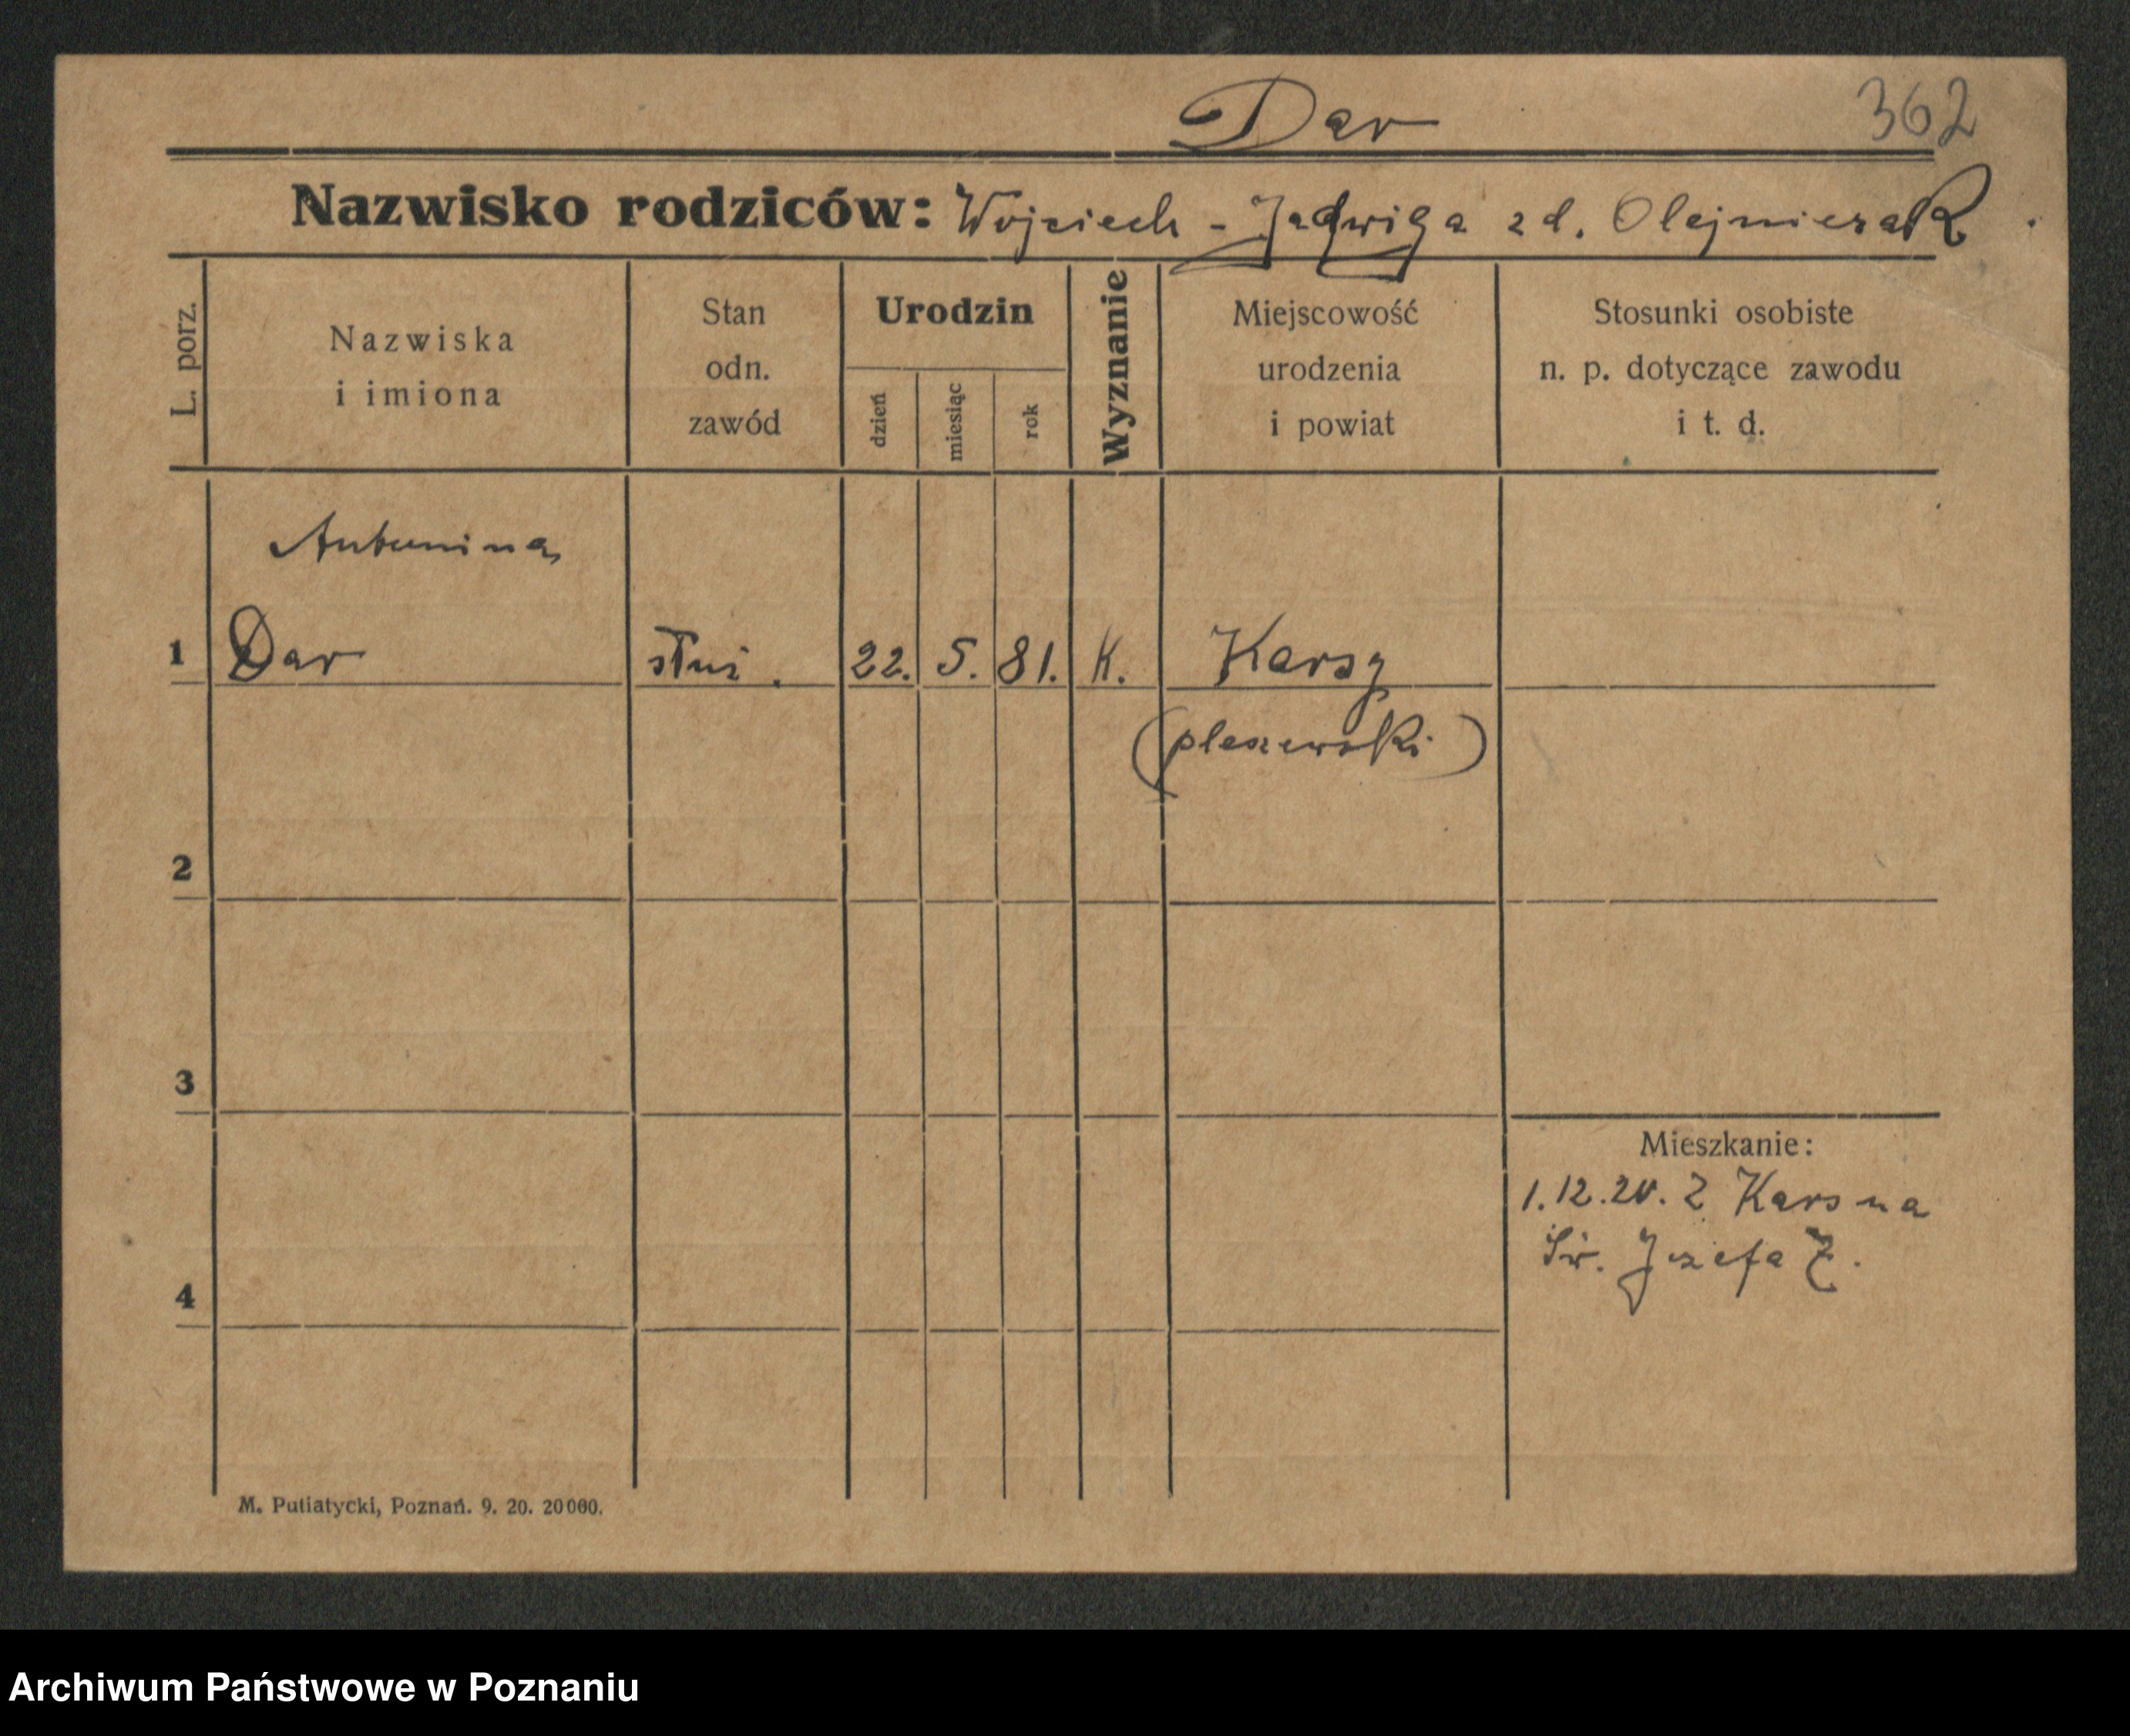 Dar 362
Nazwisko rodziców: Wojciech - Jadwiga zd. Olejniczak
L. porz.
Nazwiska
i imiona
Stan
odn.
zawód
Urodzin
dzień
miesiąc
rok
Wyznanie
Miejscowość
urodzenia
i powiat
Stosunki osobiste
n. p. dotyczące zawodu
i t. d.
Antonina
1 Dar służ. 22. 5. 81. K. Karsy
(pleszewski)
2
3
Mieszkanie:
1.12.20. Z Kars na
Św. Józefa 7.
4
M. Putiatycki, Poznań. 9. 20. 20000.
Archiwum Państwowe w Poznaniu